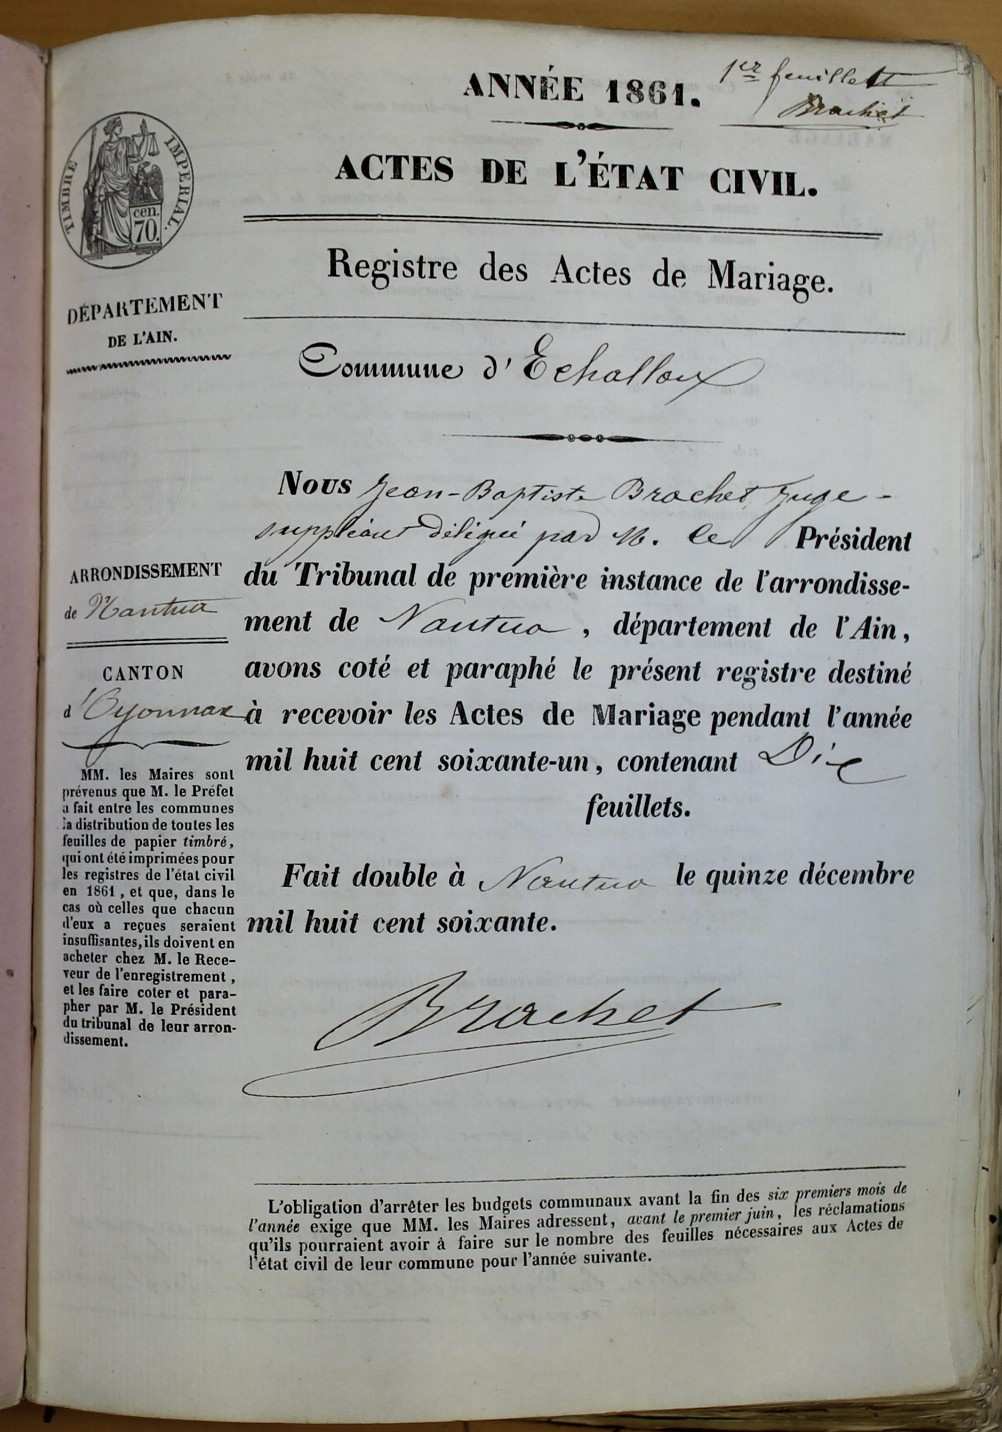 1er feuillet
Brachet
ANNÉE 1861.
ACTES DE L'ÉTAT CIVIL.
TIMBRE IMPÉRIAL.
cen.
70.
Registre des Actes de Mariage.
DÉPARTEMENT
DE L'AIN.
Commune d'Echallon
Nous Jean-Baptiste Brachet Juge-
suppléant délégué par M. le Président
du Tribunal de première instance de l'arrondisse-
ment de Nantua, département de l'Ain,
avons coté et paraphé le présent registre destiné
à recevoir les Actes de Mariage pendant l'année
mil huit cent soixante-un, contenant Dix
feuillets.
Fait double à Nantua le quinze décembre
mil huit cent soixante.
Brachet
ARRONDISSEMENT
de Nantua
CANTON
d'Oyonnax
MM. les Maires sont
prévenus que M. le Préfet
a fait entre les communes
la distribution de toutes les
feuilles de papier timbré,
qui ont été imprimées pour
les registres de l'état civil
en 1861, et que, dans le
cas où celles que chacun
d'eux a reçues seraient
insuffisantes, ils doivent en
acheter chez M. le Rece-
veur de l'enregistrement,
et les faire coter et para-
pher par M. le Président
du tribunal de leur arron-
dissement.
L'obligation d'arrêter les budgets communaux avant la fin des six premiers mois de
l'année exige que MM. les Maires adressent, avant le premier juin, les réclamations
qu'ils pourraient avoir à faire sur le nombre des feuilles nécessaires aux Actes de
l'état civil de leur commune pour l'année suivante.